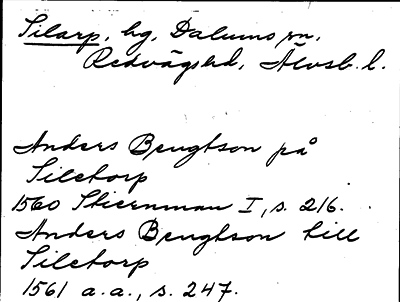 Silarp, hg, Dalums sn,
Redvägshd, Älvsb. l.
Anders Bengtson på
Siletorp
1560 Stiernman I, s. 216.
Anders Bengtson till
Siletorp
1561 a.a., s. 247.